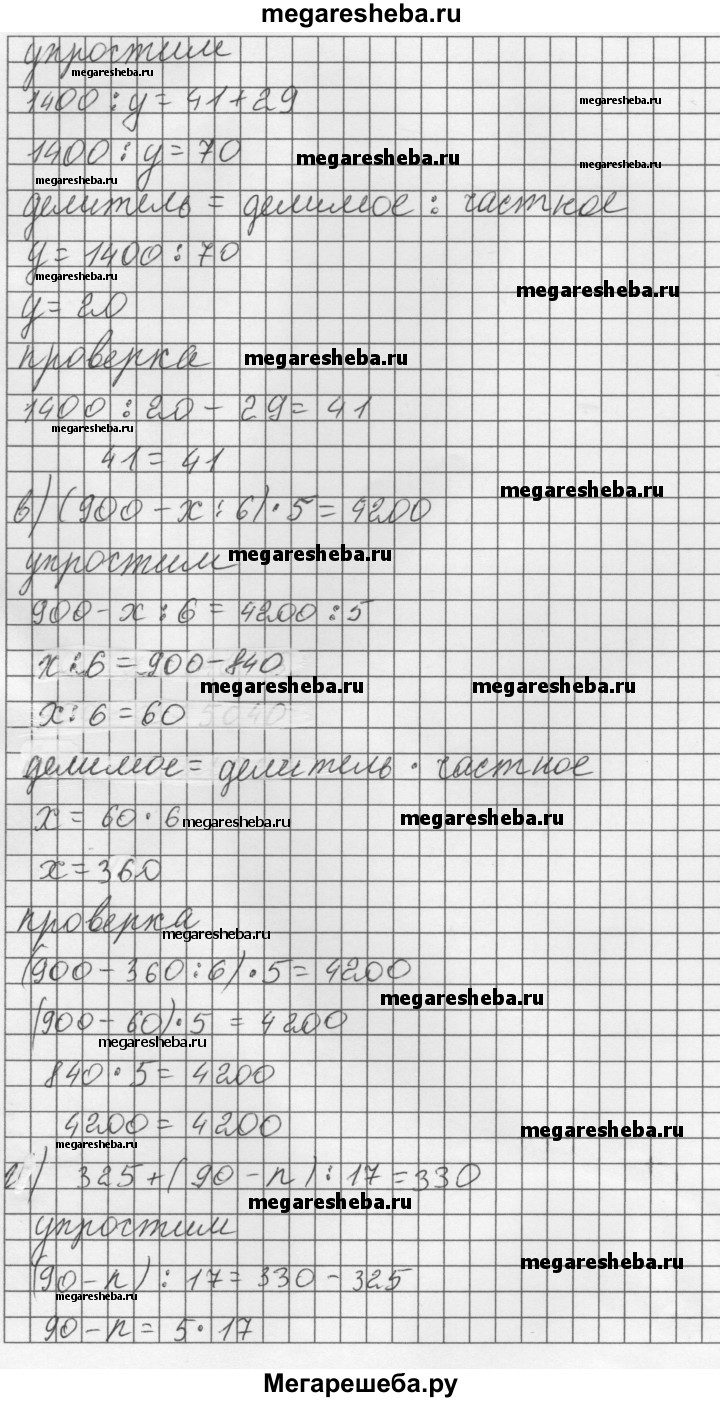 megaresheba.ru
упростим
megaresheba.ru
1400 : y = 41 + 29
megaresheba.ru
1400 : y = 70
megaresheba.ru
megaresheba.ru
megaresheba.ru
делитель = делимое : частное
y = 1400 : 70
megaresheba.ru
megaresheba.ru
y = 20
проверка
megaresheba.ru
1400 : 20 - 29 = 41
megaresheba.ru
41 = 41
megaresheba.ru
в) (900 - x : 6) · 5 = 4200
упростим
megaresheba.ru
900 - x : 6 = 4200 : 5
x : 6 = 900 - 840
megaresheba.ru
megaresheba.ru
x : 6 = 60
делимое = делитель · частное
x = 60 · 6
megaresheba.ru
megaresheba.ru
x = 360
проверка
megaresheba.ru
(900 - 360 : 6) · 5 = 4200
megaresheba.ru
(900 - 60) · 5 = 4200
megaresheba.ru
840 · 5 = 4200
4200 = 4200
megaresheba.ru
megaresheba.ru
г) 325 + (90 - n) : 17 = 330
megaresheba.ru
упростим
megaresheba.ru
(90 - n) : 17 = 330 - 325
megaresheba.ru
90 - n = 5 · 17
Мегарешеба.ру